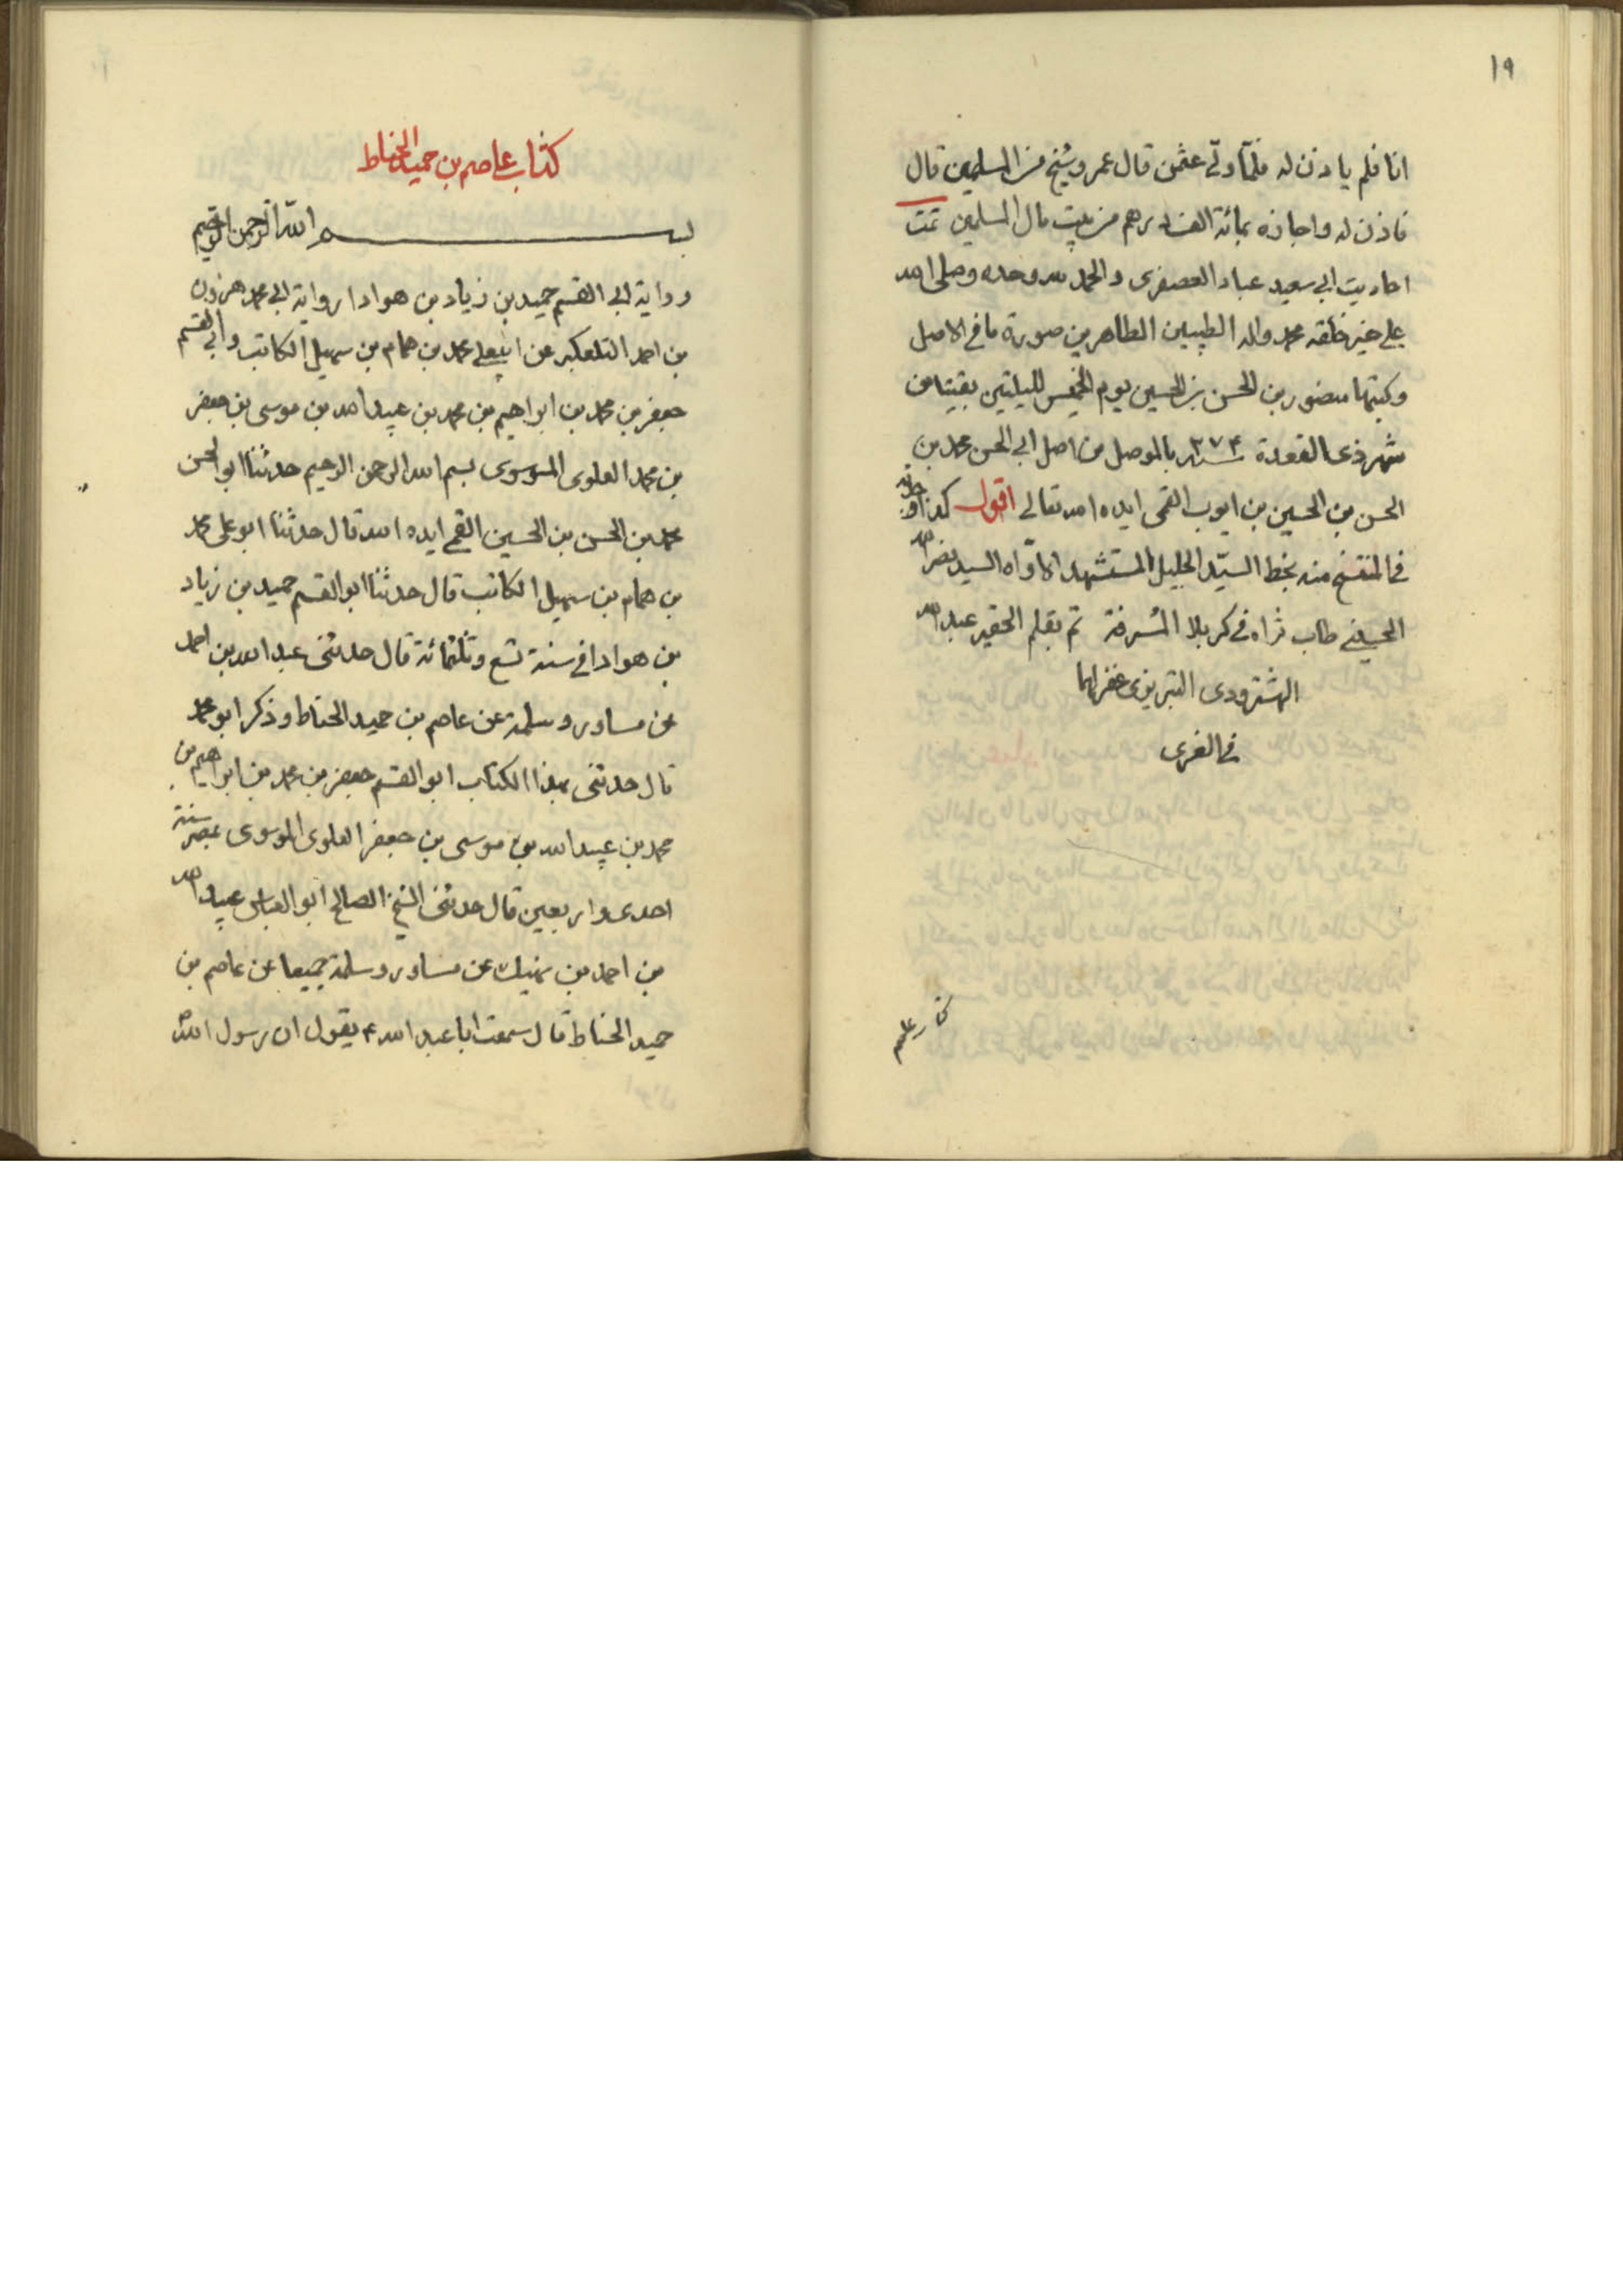 ١٩
انا فلم ياذن له فلمّا ولّى عثمن قال عمر وشيخ من المسلمين قال
فاذن له واجازه بمائة الف درهم من بيت مال المسلمين تمت
احاديث ابي سعيد عباد العصفري والحمد لله وحده وصلى الله
على خير خلقه محمد واله الطيبين الطاهرين صورة ما في الاصل
وكتبتها منصور بن الحسن بن الحسين يوم الخميس لليلتين بقيتا من
شهر ذي القعدة سنة ٣٧۴ بالموصل من اصل ابي الحسن محمد بن
الحسن بن الحسين بن ايوب القمى ايده الله تعالى اقول كذا وجدته
في المنتسخ منه بخط السيّد الجليل المستشهد الاوّاه السيد نصر الله
الحسيني طاب ثراه في كربلا المشرفة تم بقلم الحقير عبد الله
الهشترودى التبريزى غفر لهما
في الغرى
كتاب عاصم بن حميد الحناط
بسم الله الرحمن الرحيم
رواية ابي القسم حميد بن زياد بن هوادا رواية ابي محمد هرون
بن احمد التلعكبر عن ابي على محمد بن همام بن سهيل الكاتب وابي القسم
جعفر بن محمد بن ابراهيم بن محمد بن عبيد الله بن موسى بن جعفر
بن محمد العلوى الموسوى بسم الله الرحمن الرحيم حدثنا ابو الحسن
محمد بن الحسن بن الحسين القمي ايده الله قال حدثنا ابو على محمد
بن همام بن سهيل الكاتب قال حدثنا ابو القسم حميد بن زياد
بن هوادا في سنة تسع وثلثمائة قال حدثنى عبد الله بن احمد
عن مساور وسلمة عن عاصم بن حميد الحناط وذكر ابو محمد
قال حدثنى بهذا الكتاب ابو القسم جعفر بن محمد بن ابراهيم بن
محمد بن عبيد الله بن موسى بن جعفر العلوى الموسوى بمصر سنة
احدى واربعين قال حدثنى الشيخ الصالح ابو العباس عبيد الله
بن احمد بن نهيك عن مساور وسلمة جميعا عن عاصم بن
حميد الحناط قال سمعت ابا عبد الله ع يقول ان رسول الله